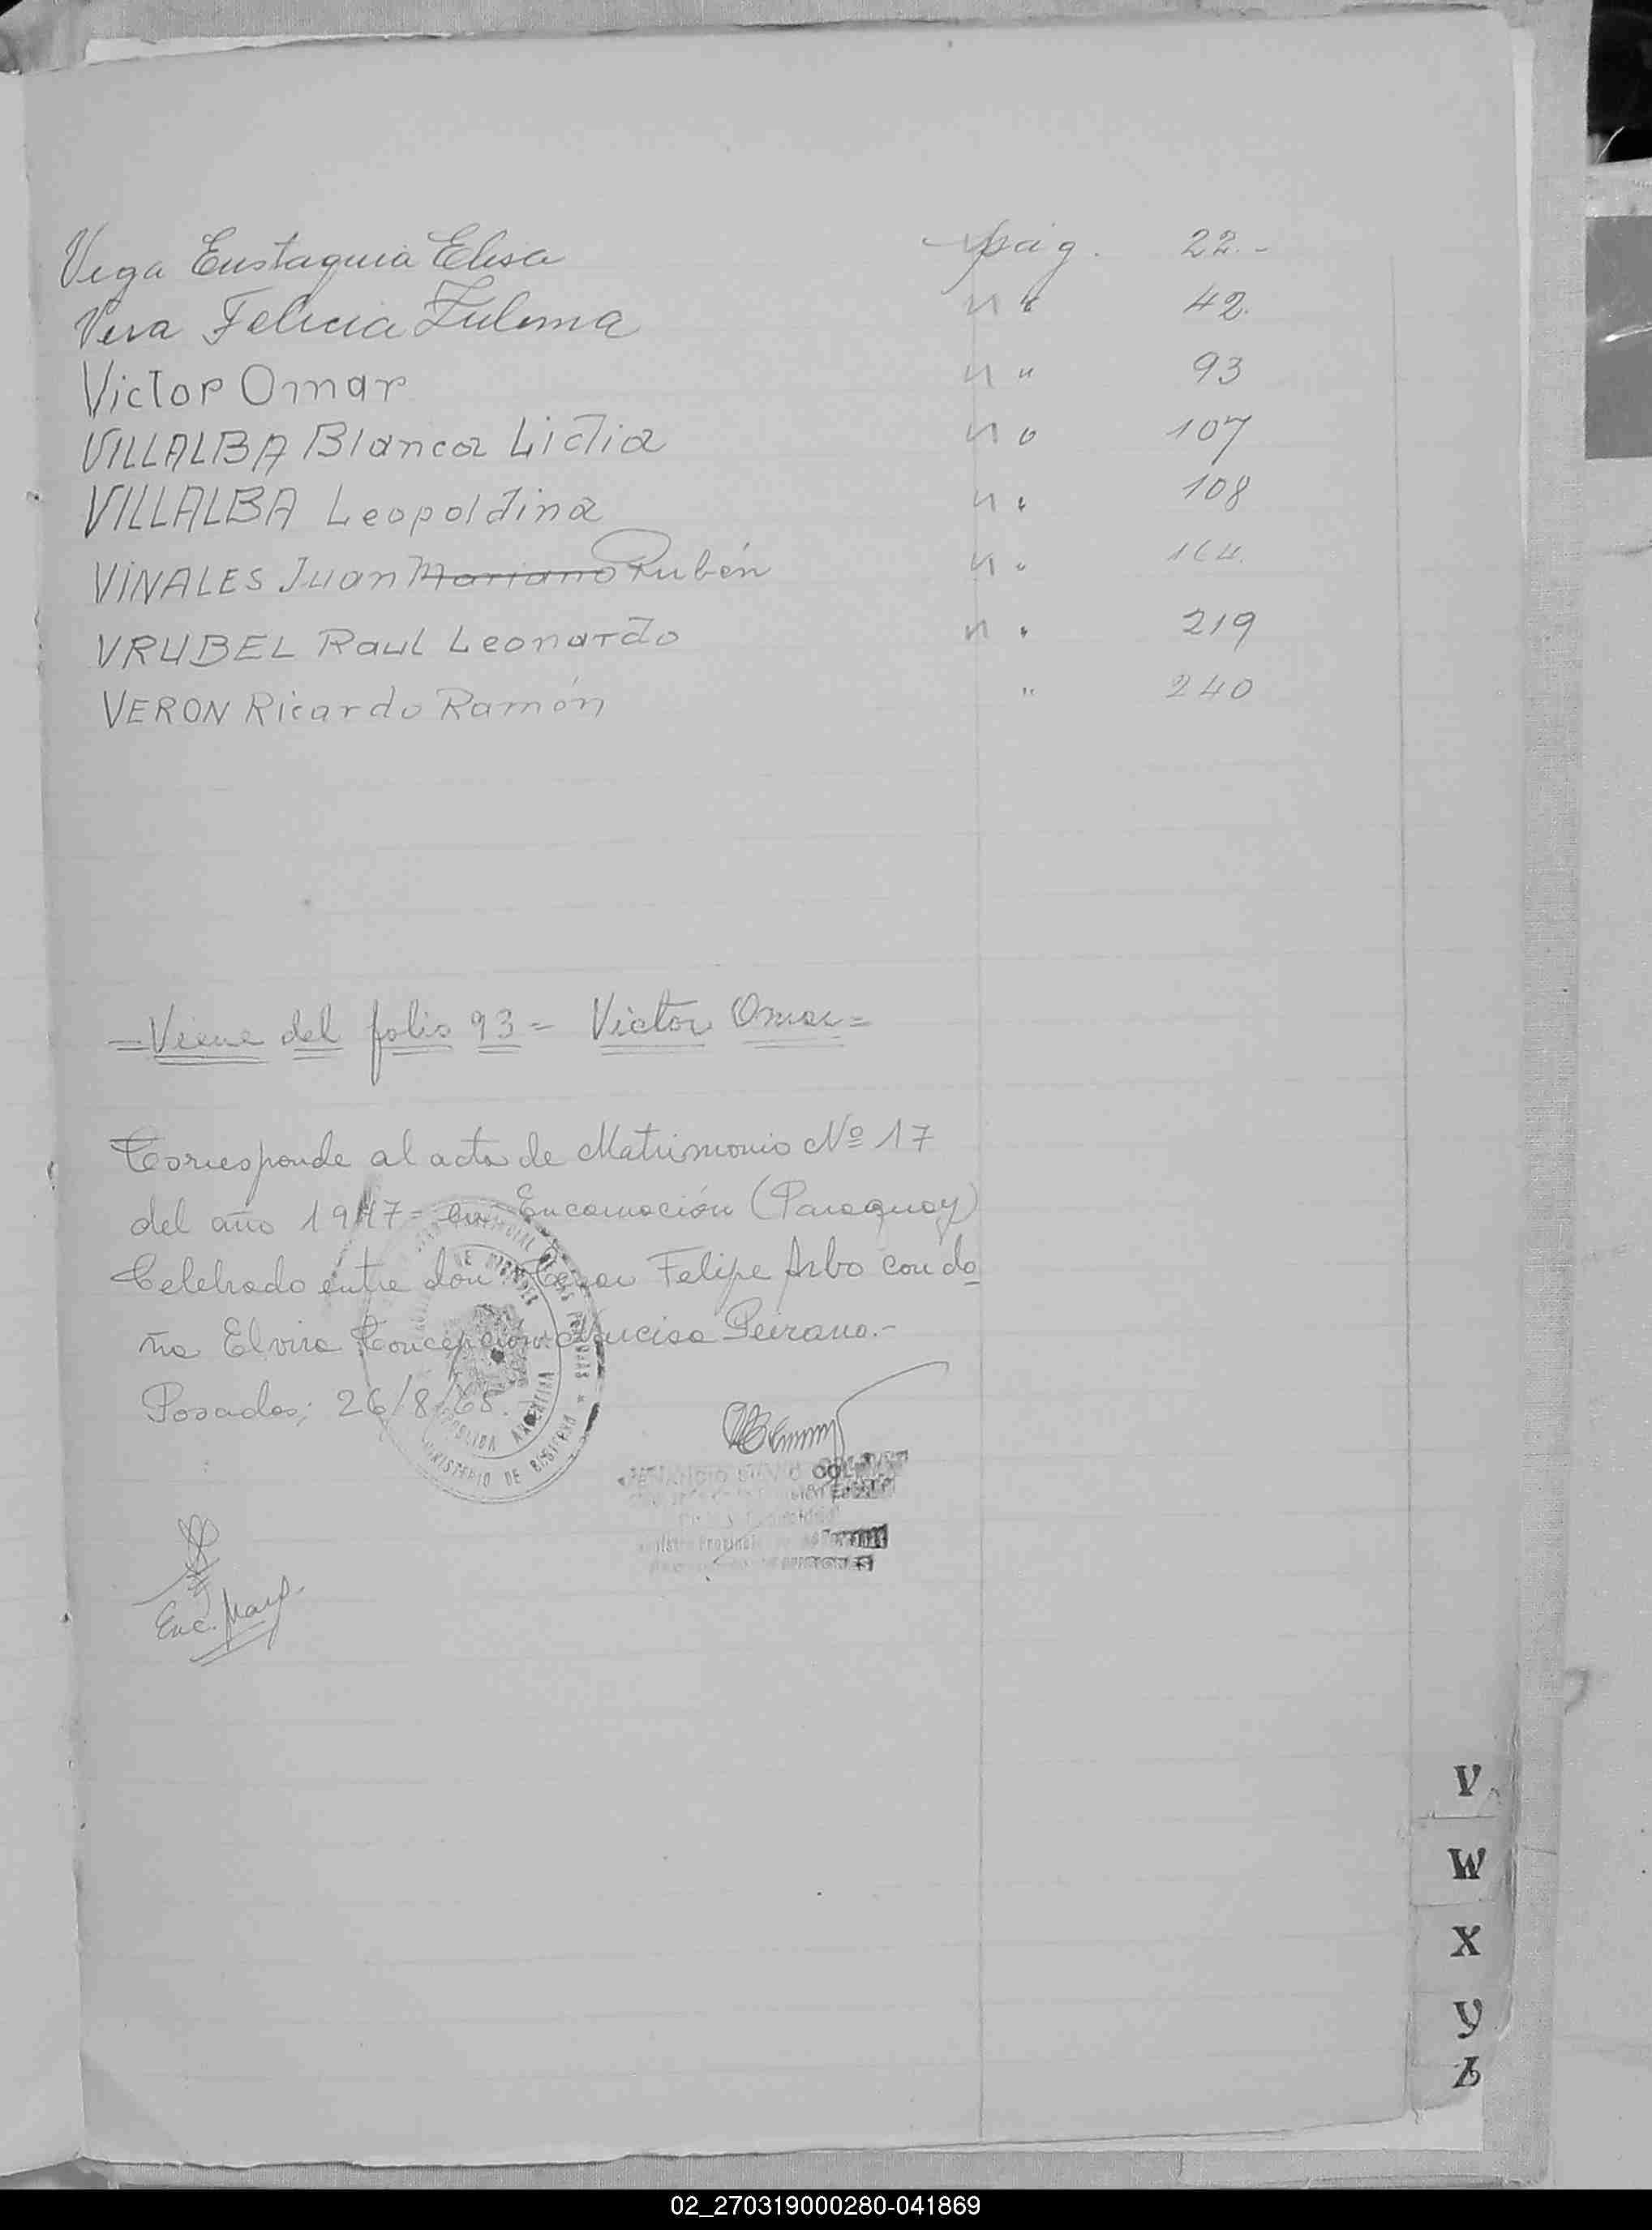 Vega Eustaquia Elisa pág. 22.-
Vera Felicia Zulema " " 42.
Victor Omar " " 93
VILLALBA Blanca Lidia " " 107
VILLALBA Leopoldina " " 108
VIÑALES Juan Mariano Rubén " "
VRUBEL Raul Leonardo " " 219
VERON Ricardo Ramón " 240
=Viene del folio 93= Victor Omar=
Corresponde al acta de Matrimonio Nº 17
del año 1947= en Encarnación (Paraguay)
Celebrado entre don Felipe Arbo con do
ña Elvira Concepción Narcisa Peirano.-
Posadas; 26/8/68.
REPUBLICA ARGENTINA
MINISTERIO DE GOBIERNO
DE MISIONES
DE LAS PERSONAS
Enc. Marg.
V
W
X
Y
Z
02_270319000280-041869